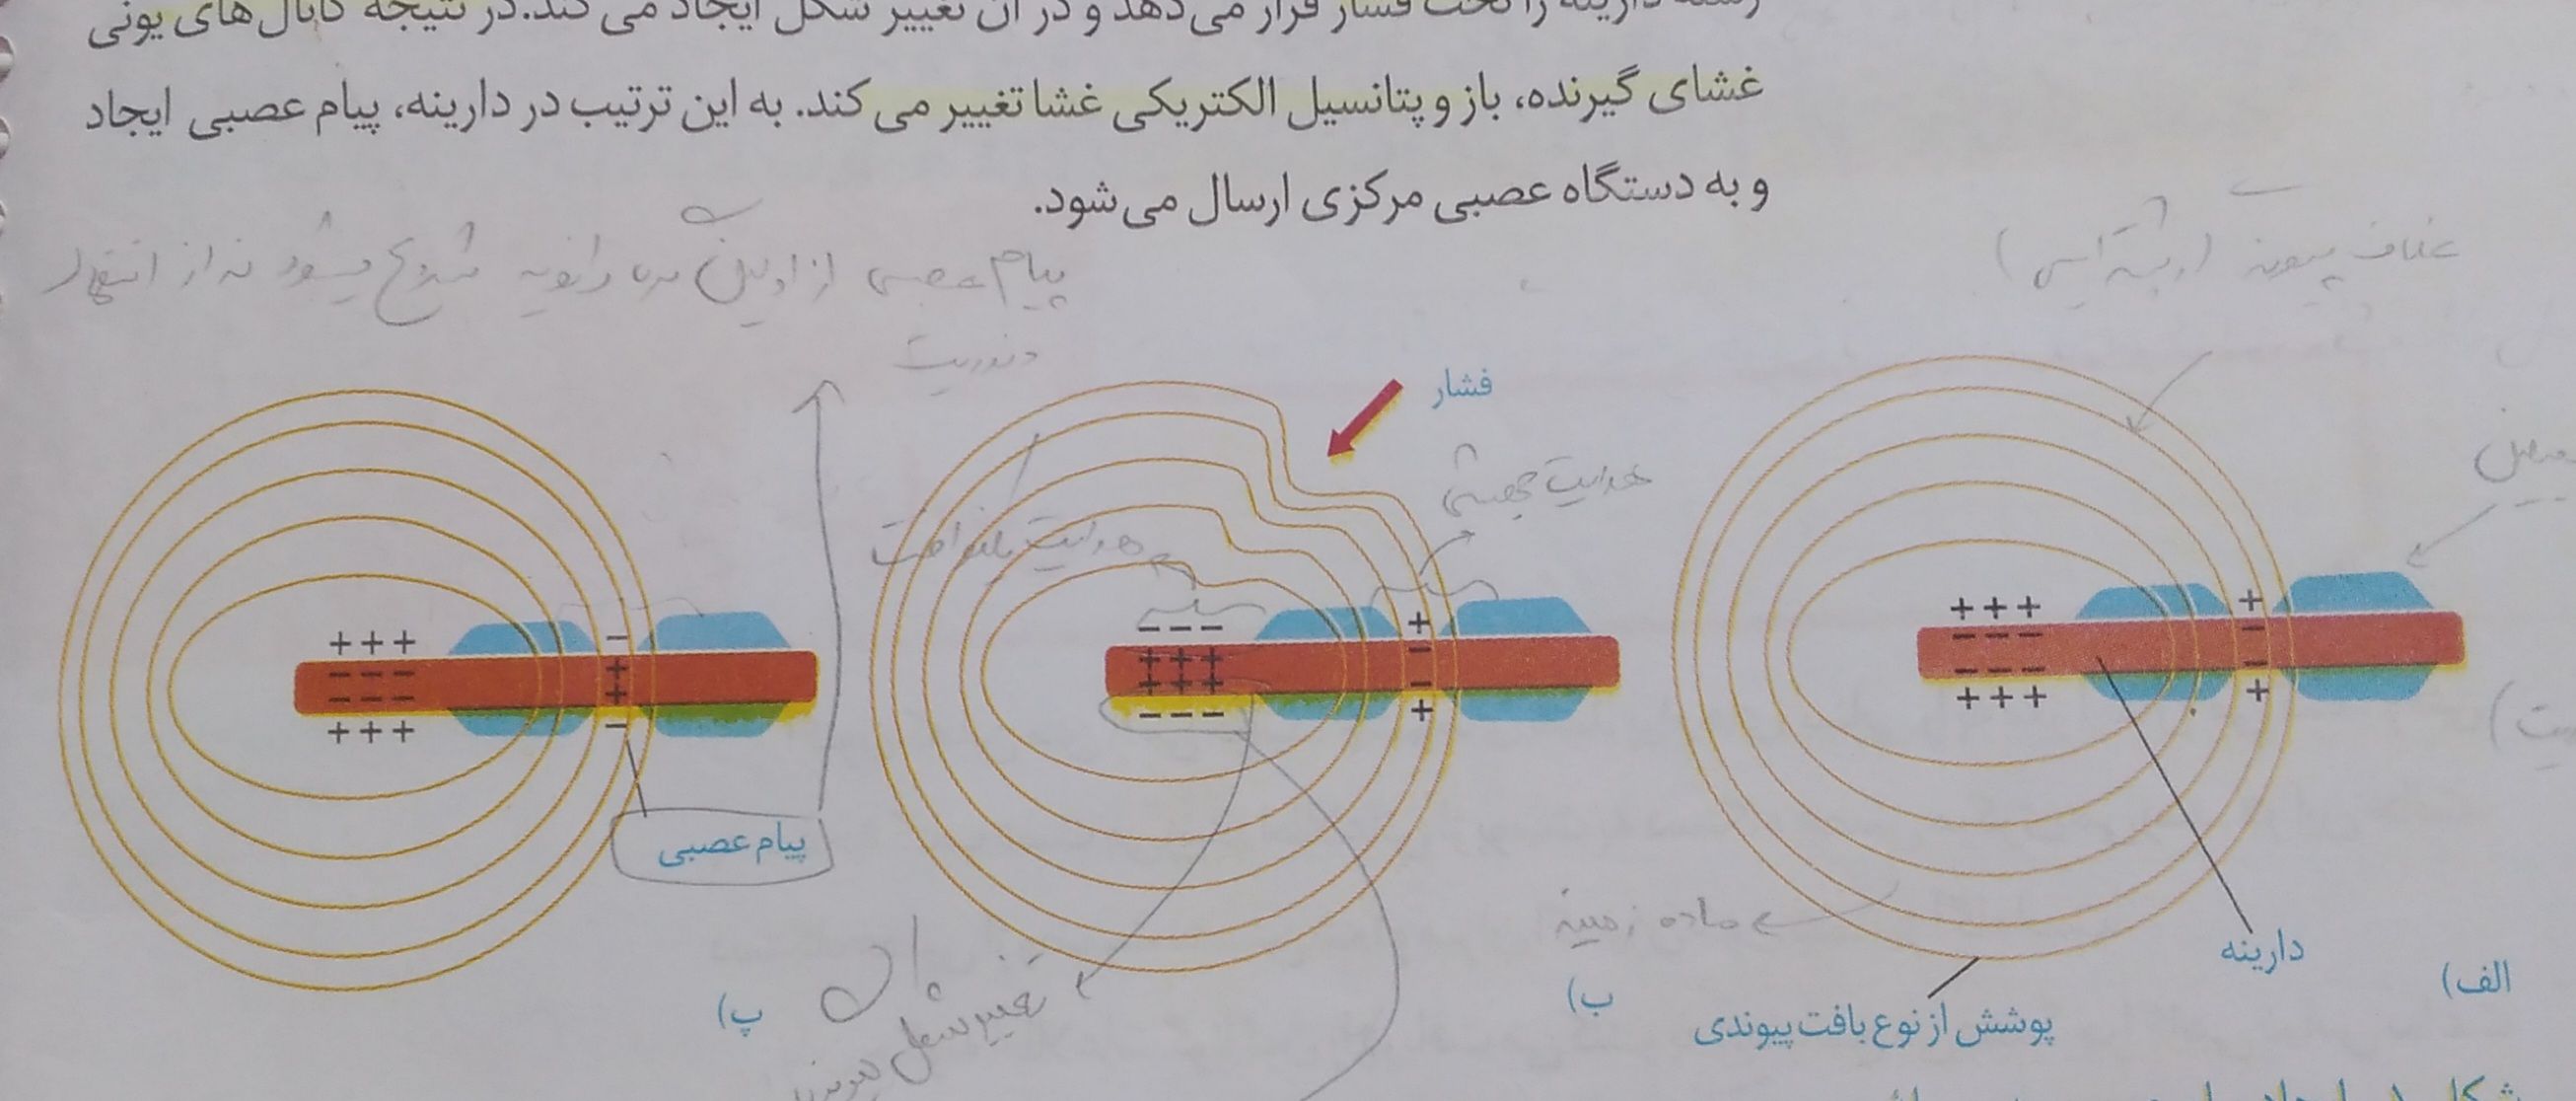 رشته دارینه را تحت فشار قرار می‌دهد و در آن تغییر شکل ایجاد می کند.در نتیجه کانال‌های یونی
غشای گیرنده، باز و پتانسیل الکتریکی غشا تغییر می کند. به این ترتیب در دارینه، پیام عصبی ایجاد
و به دستگاه عصبی مرکزی ارسال می‌شود.
غلاف پیوندی (رشته ایی)
پیام عصبی از اولین گره رانویه شروع میشود نه از انتهای
دندریت
فشار
هدایت جهشی
هدایت یکنواخت
+++
---
---
+++
+
-
-
+
---
+++
+++
---
+
-
-
+
+++
---
---
+++
-
+
+
-
پیام عصبی
ماده زمینه
دارینه
الف)
پوشش از نوع بافت پیوندی
ب)
پ)
تغییر شکل